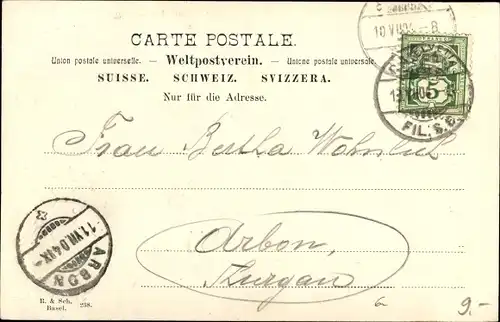 CARTE POSTALE.
Union postale universelle. — Weltpostverein. — Unione postale universale.
SUISSE. SCHWEIZ. SVIZZERA.
Nur für die Adresse.
5
FIL. S. B.
Frau Bertha Wohnlich
Arbon,
Thurgau
11.VII.04.IX
ARBON
R. & Sch.
Basel. 238.
9.-